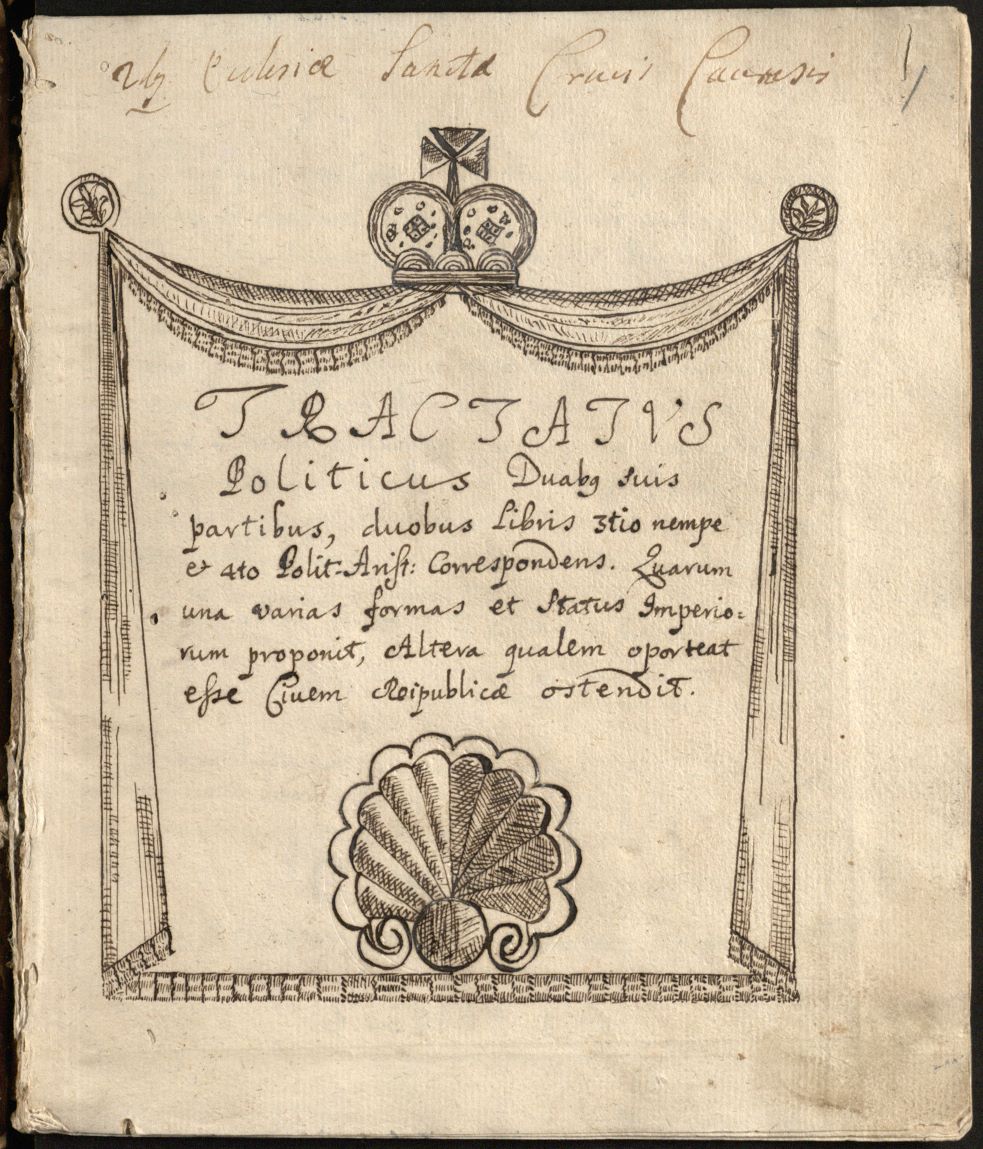 Ecclesiæ Sanctæ Crucis Caunensis 1
TRACTATVS
Politicus Duabq suis
partibus, duobus Libris 3tio nempe
et 4to Polit: Arist: Correspondens. Quarum
una varias formas et Status Imperio:
rum proponit, Altera qualem oporteat
esse Civem Reipublicæ ostendit.